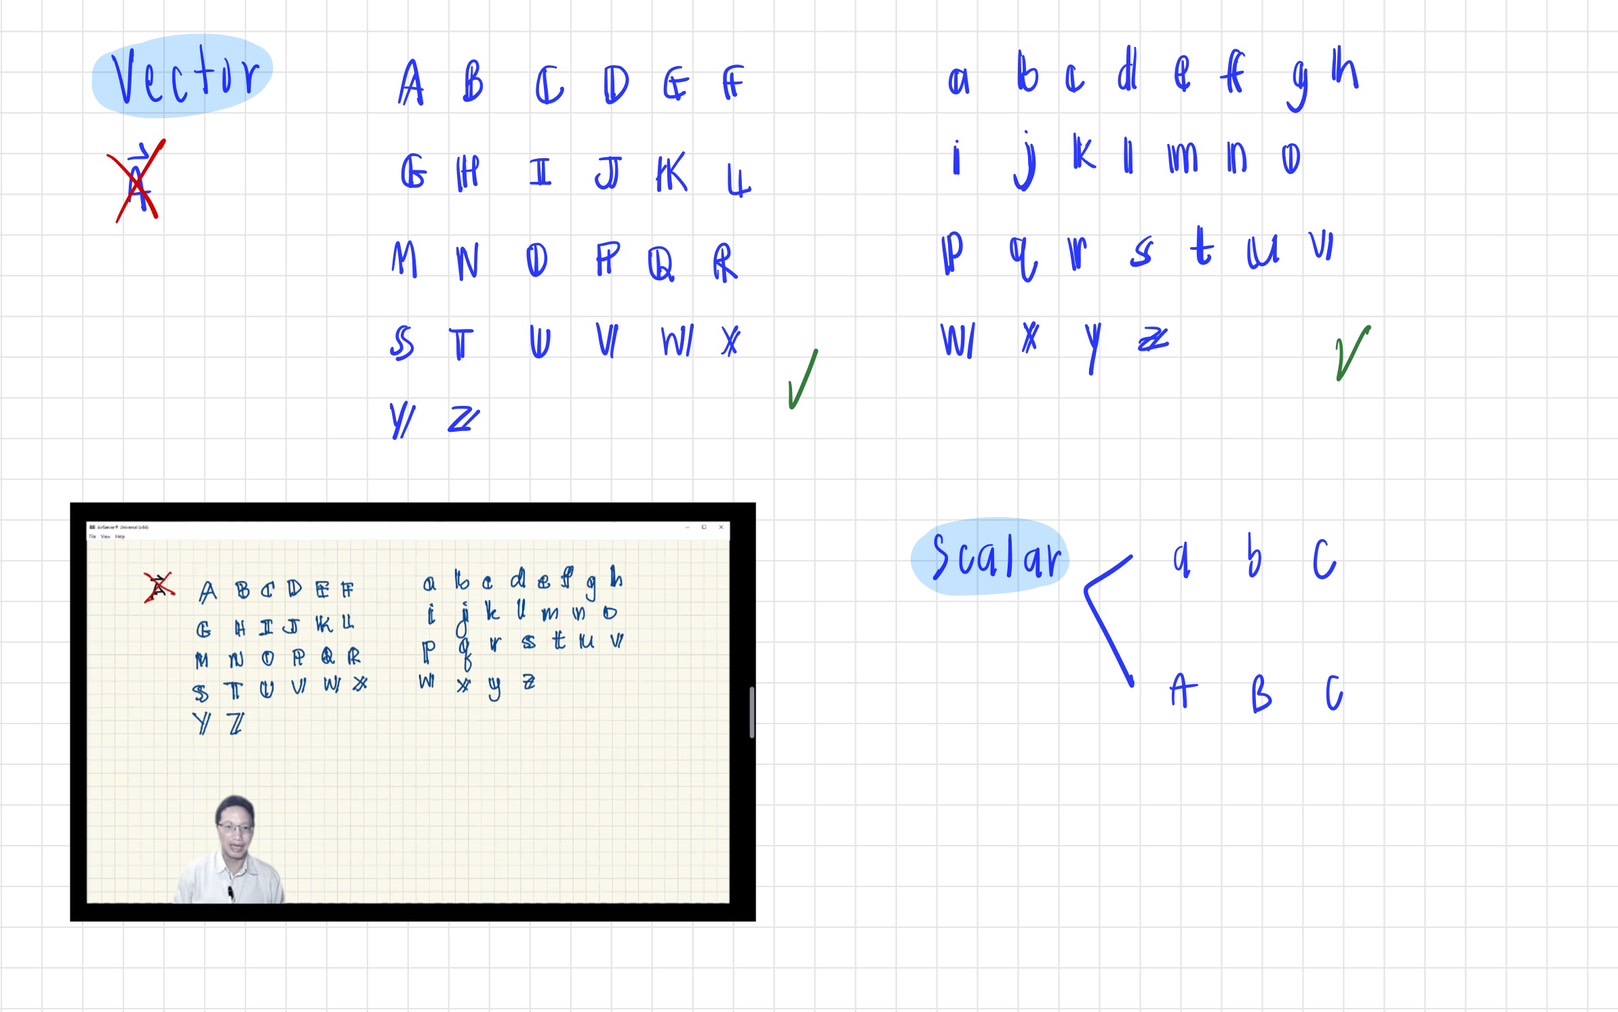 Vector
A⃗
𝔸 𝔹 ℂ 𝔻 𝔼 𝔽
𝔾 ℍ 𝕀 𝕁 𝕂 𝕃
𝕄 ℕ 𝕆 ℙ ℚ ℝ
𝕊 𝕋 𝕌 𝕍 𝕎 𝕏
𝕐 ℤ
𝕒 𝕓 𝕔 𝕕 𝕖 𝕗 𝕘 𝕙
𝕚 𝕛 𝕜 𝕝 𝕞 𝕟 𝕠
𝕡 𝕢 𝕣 𝕤 𝕥 𝕦 𝕧
𝕨 𝕩 𝕪 𝕫
AirServer® Universal (x64)
File View Help
A⃗
𝔸 𝔹 ℂ 𝔻 𝔼 𝔽
𝔾 ℍ 𝕀 𝕁 𝕂 𝕃
𝕄 ℕ 𝕆 ℙ ℚ ℝ
𝕊 𝕋 𝕌 𝕍 𝕎 𝕏
𝕐 ℤ
𝕒 𝕓 𝕔 𝕕 𝕖 𝕗 𝕘 𝕙
𝕚 𝕛 𝕜 𝕝 𝕞 𝕟 𝕠
𝕡 𝕢 𝕣 𝕤 𝕥 𝕦 𝕧
𝕨 𝕩 𝕪 𝕫
Scalar
a b c
A B C